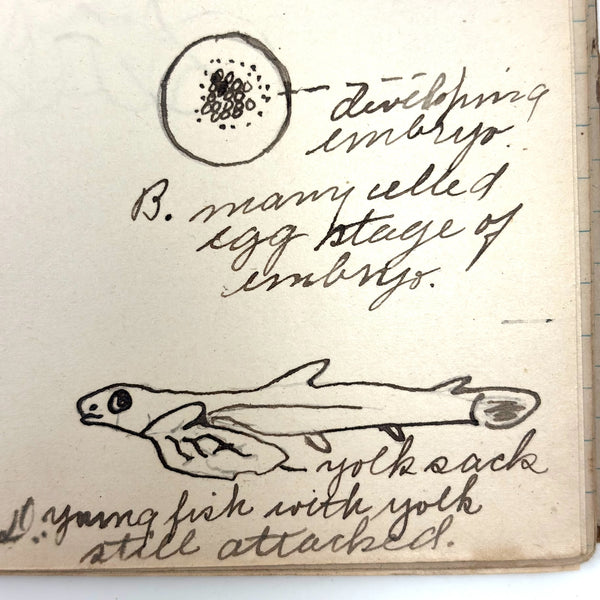 developing
embryo.
B. many celled
egg stage of
embryo.
yolk sack
D. young fish with yolk
still attached.